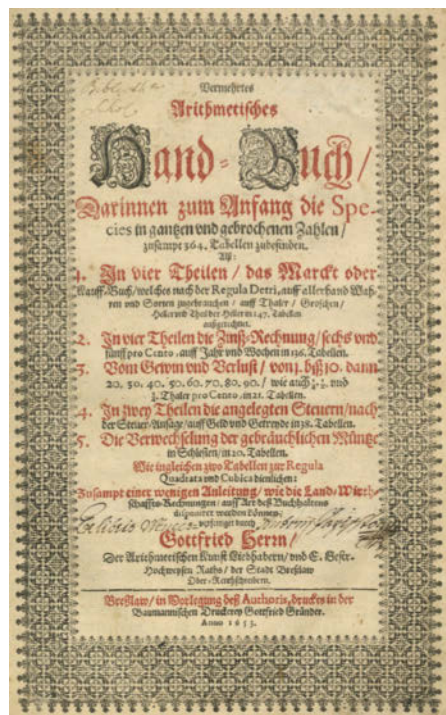 Vermehrtes
Arithmetisches
Hand-Buch/
Darinnen zum Anfang die Spe-
cies in gantzen vnd gebrochenen Zahlen/
zusampt 364. Tabellen zubefinden.
Alß:
1. In vier Theilen/ das Marckt oder
Kauff-Buch/welches nach der Regula Detri, auff allerhand Wah-
ren vnd Sorten zugebrauchen/ auff Thaler/ Groschen/
Heller vnd Theil der Heller in 147. Tabellen
außgerechnet.
2. In vier Theilen die Zinß-Rechnung/sechs vnd
fünff pro Cento, auff Jahr vnd Wochen in 136. Tabellen.
3. Vom Gewin vnd Verlust/ von 1. biß 30. dann
20. 30. 40. 50. 60. 70. 80. 90./ wie auch vnd
Thaler pro Cento, in 21. Tabellen.
4. In zwey Theilen die angelegten Steuern/nach
der Steuer/Ansage/auff Geld vnd Getreyde in 38. Tabellen.
5. Die Verwechselung der gebräuchlichen Müntze
in Schlesien/in 20. Tabellen.
Wie ingleichen zwo Tabellen zur Regula
Quadrata vnd Cubica dienlichen:
Zusampt einer wenigen Anleitung/wie die Land-Wirth-
schaffts-Rechnungen/ auff Art deß Buchhaltens
werden können/
verfertiget durch
Ex libris
Gottfried Herrn/
Der Arithmetischen Kunst Liebhabern/vnd E. Gestr.
Hochweysen Raths/ der Stadt Breßlaw
Ober-Rentschreibern.
Breßlaw/in Vorlegung deß Authoris, druckts in der
Baumannischen Druckerey Gottfried Gründer.
Anno 1653.